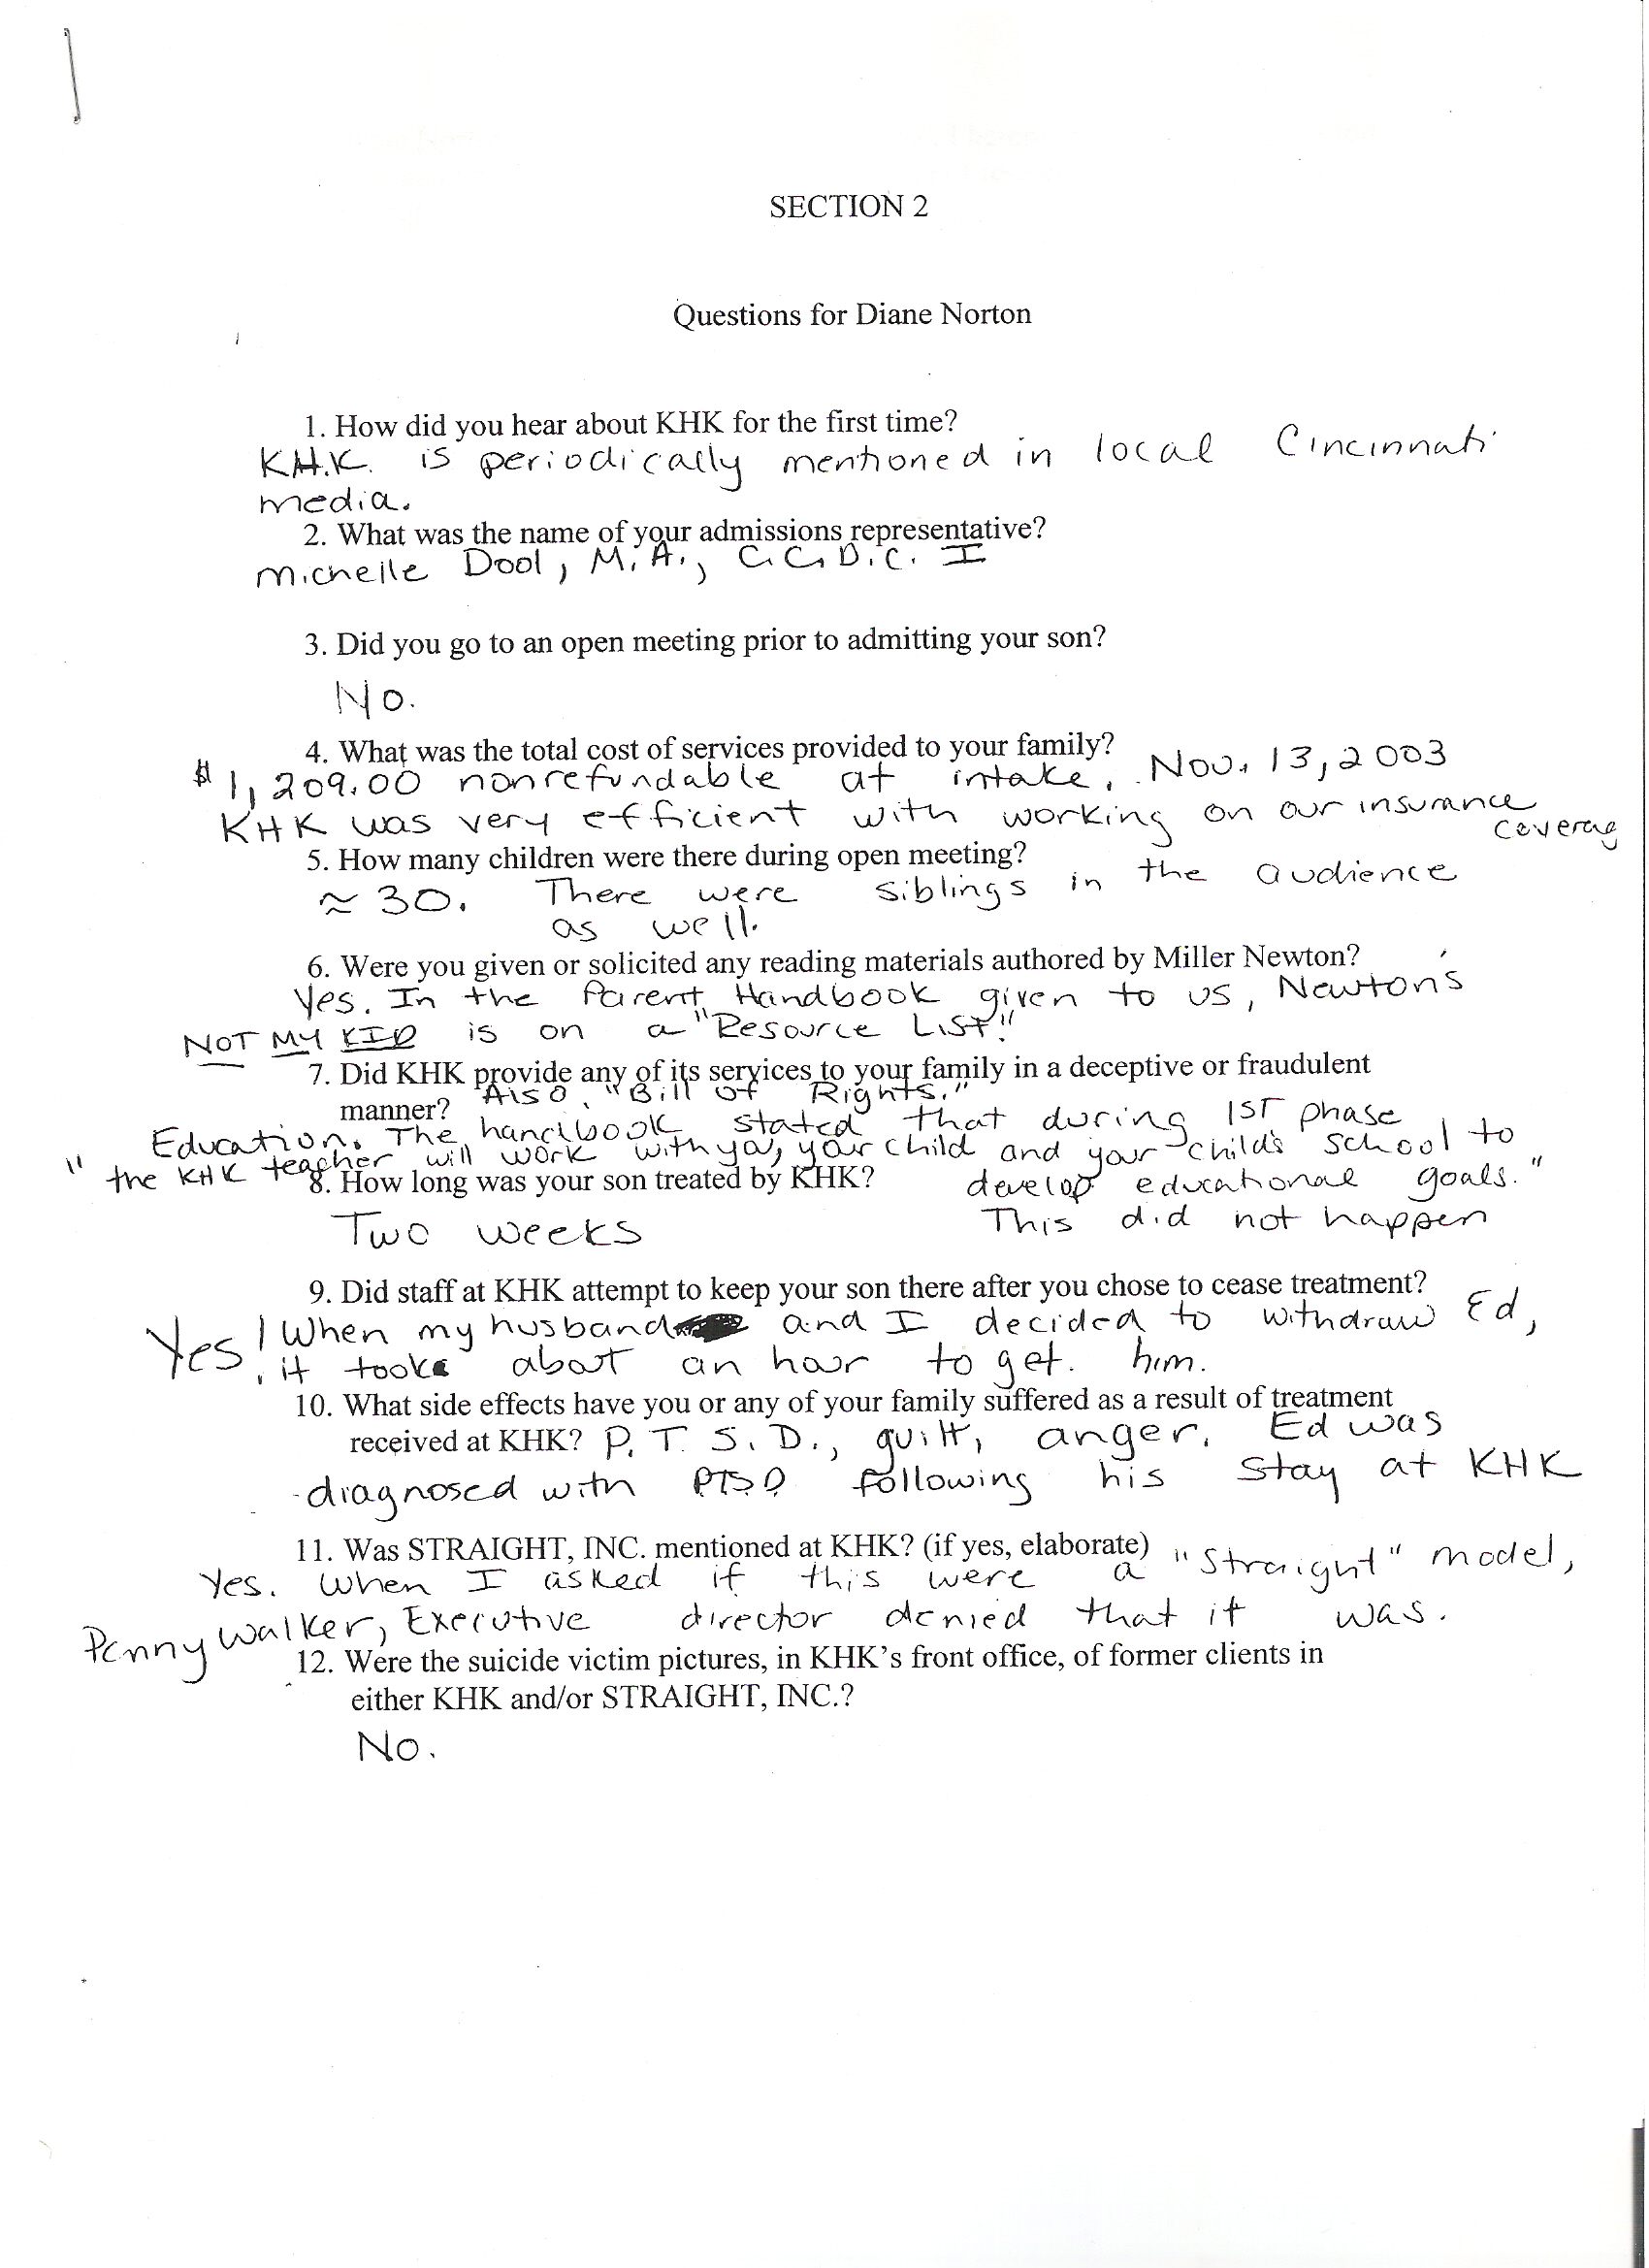 SECTION 2
Questions for Diane Norton
1. How did you hear about KHK for the first time?
K.H.K. is periodically mentioned in local Cincinnati
media.
2. What was the name of your admissions representative?
Michelle Dool, M.A., C.C.D.C. I
3. Did you go to an open meeting prior to admitting your son?
No.
4. What was the total cost of services provided to your family?
$1,209.00 nonrefundable at intake, Nov. 13, 2003
KHK was very efficient with working on our insurance
coverag
5. How many children were there during open meeting?
≈ 30. There were siblings in the audience
as well.
6. Were you given or solicited any reading materials authored by Miller Newton?
Yes. In the Parent Handbook given to us, Newton's
NOT MY KID is on a "Resource List."
7. Did KHK provide any of its services to your family in a deceptive or fraudulent
manner? Also, "Bill of Rights."
Education. The handbook stated that during 1ST phase
"the KHK teacher will work with you, your child and your child's school to
develop educational goals."
This did not happen
8. How long was your son treated by KHK?
Two weeks
9. Did staff at KHK attempt to keep your son there after you chose to cease treatment?
Yes! When my husband and I decided to withdraw Ed,
it took about an hour to get him.
10. What side effects have you or any of your family suffered as a result of treatment
received at KHK? P.T.S.D., guilt, anger. Ed was
diagnosed with PTSD following his stay at KHK
11. Was STRAIGHT, INC. mentioned at KHK? (if yes, elaborate)
Yes. When I asked if this were a "Straight" model,
Penny Walker, Executive director denied that it was.
12. Were the suicide victim pictures, in KHK's front office, of former clients in
either KHK and/or STRAIGHT, INC.?
No.